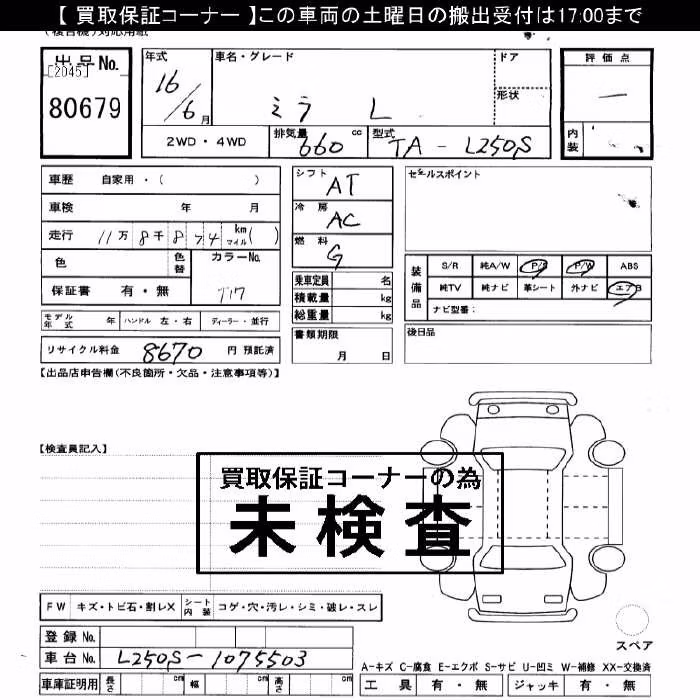 【 買取保証コーナー 】この車両の土曜日の搬出受付は17:00まで
(複合機)対応用紙
出品No.
[2045]
80679
年式
16/6月
車名・グレード
ミラ L
ドア
形状
評価点
―
内装
2WD・4WD
排気量 660 cc
型式 TA-L250S
車歴 自家用・( )
車検 年 月
走行 11万8千874 km マイル( )
色 色替 カラーNo.
T17
保証書 有・無
モデル年式 年 ハンドル 左・右 ディーラー・並行
リサイクル料金 8670 円 預託済
シフト AT
冷房 AC
燃料 G
乗車定員 名
積載量 kg
総重量 kg
書類期限
月 日
セールスポイント
装備品
S/R 純A/W P/S P/W ABS
純TV 純ナビ 革シート 外ナビ エアB
ナビ型番:
後日品
【出品店申告欄(不良箇所・欠品・注意事項等)】
【検査員記入】
買取保証コーナーの為
未検査
FW キズ・トビ石・割レX シート内装 コゲ・穴・汚レ・シミ・破レ・スレ
登録No.
車台No. L250S-1075503
車庫証明用 長さ cm 幅 cm 高さ cm
スペア
A-キズ C-腐食 E-エクボ S-サビ U-凹ミ W-補修 XX-交換済
工具 有・無 ジャッキ 有・無